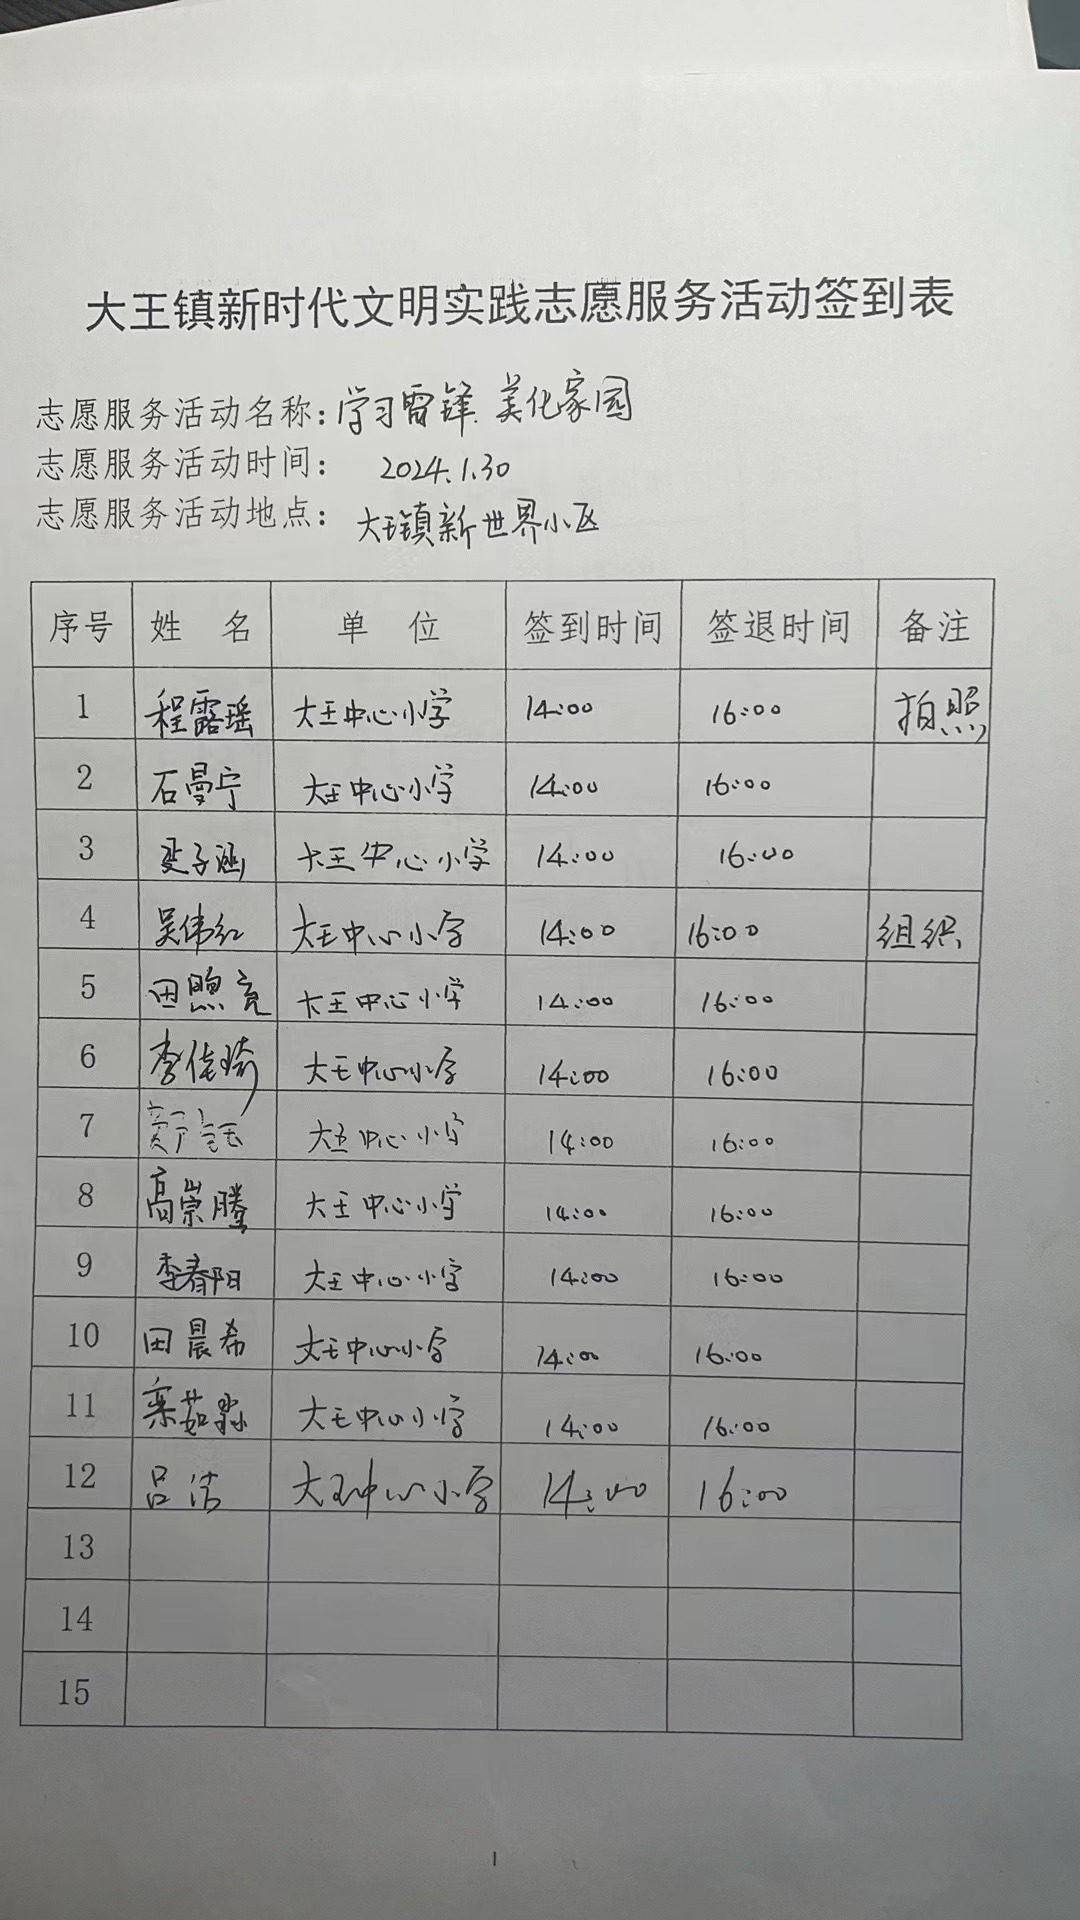 大王镇新时代文明实践志愿服务活动签到表
志愿服务活动名称:学习雷锋.美化家园
志愿服务活动时间: 2024.1.30
志愿服务活动地点: 大王镇新世界小区
序号 姓 名 单 位 签到时间 签退时间 备注
1 程露瑶 大王中心小学 14:00 16:00 拍照
2 石曼宁 大王中心小学 14:00 16:00
3 子涵 大王中心小学 14:00 16:00
4 吴伟红 大王中心小学 14:00 16:00 组织
5 田煦亮 大王中心小学 14:00 16:00
6 李佳琦 大王中心小学 14:00 16:00
7 大王中心小学 14:00 16:00
8 高崇腾 大王中心小学 14:00 16:00
9 李春阳 大王中心小学 14:00 16:00
10 田晨希 大王中心小学 14:00 16:00
11 栾茹淼 大王中心小学 14:00 16:00
12 吕洁 大王中心小学 14:00 16:00
13
14
15
1